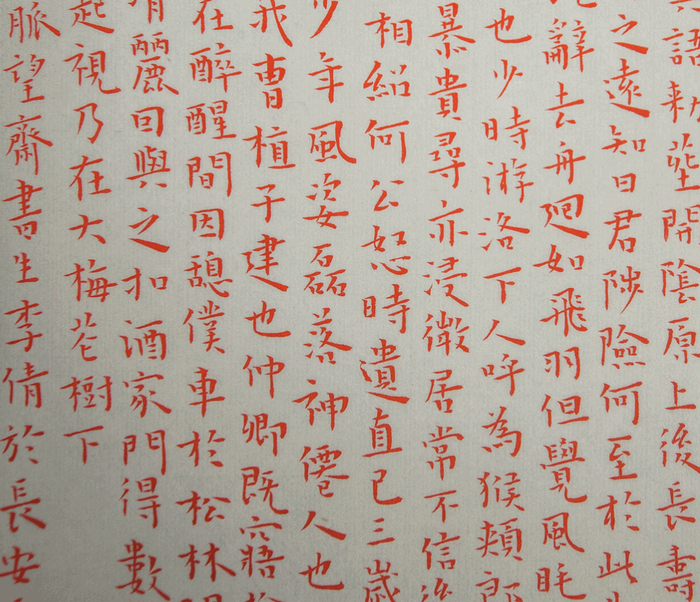 語新塋開陰原上後長壽
之遠知曰君陟險何至於此
辭去舟迴如飛羽但覺風眊
也少時游洛下人呼為猴頰郎
暴貴尋亦浸微居常不信
相紹何公恕時遺直已三歲
少年風姿磊落神僊人也
我曹植子建也仲卿既寤
在醉醒間因憩僕車於松林間
麗曰與之扣酒家門得數
起視乃在大梅花樹下
脈望齋書生李倩於長安